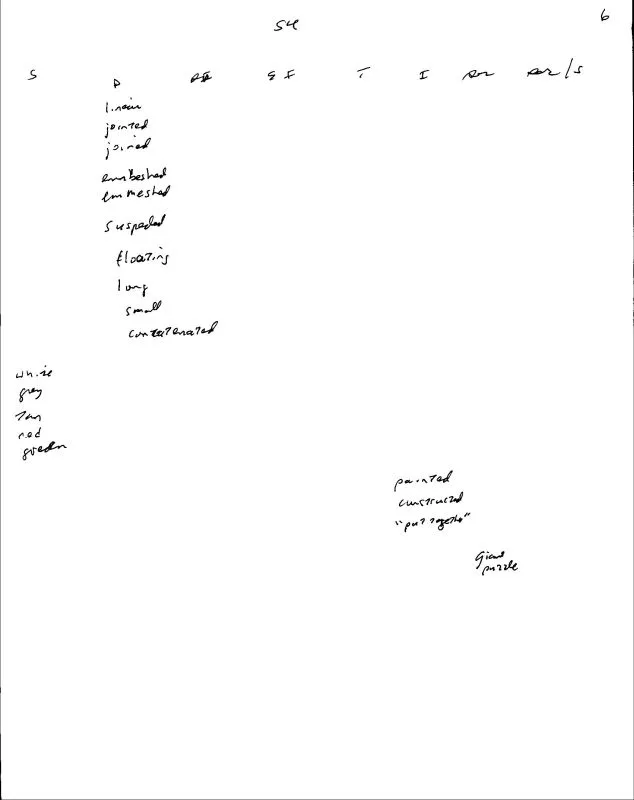 S4
6
S D AI EI T I AOL AOL/S
linear
jointed
joined
enmbeshed
enmeshed
suspeded
floating
long
small
concatenated
white
grey
tan
red
green
painted
constructed
"put together"
Giant
puzzle